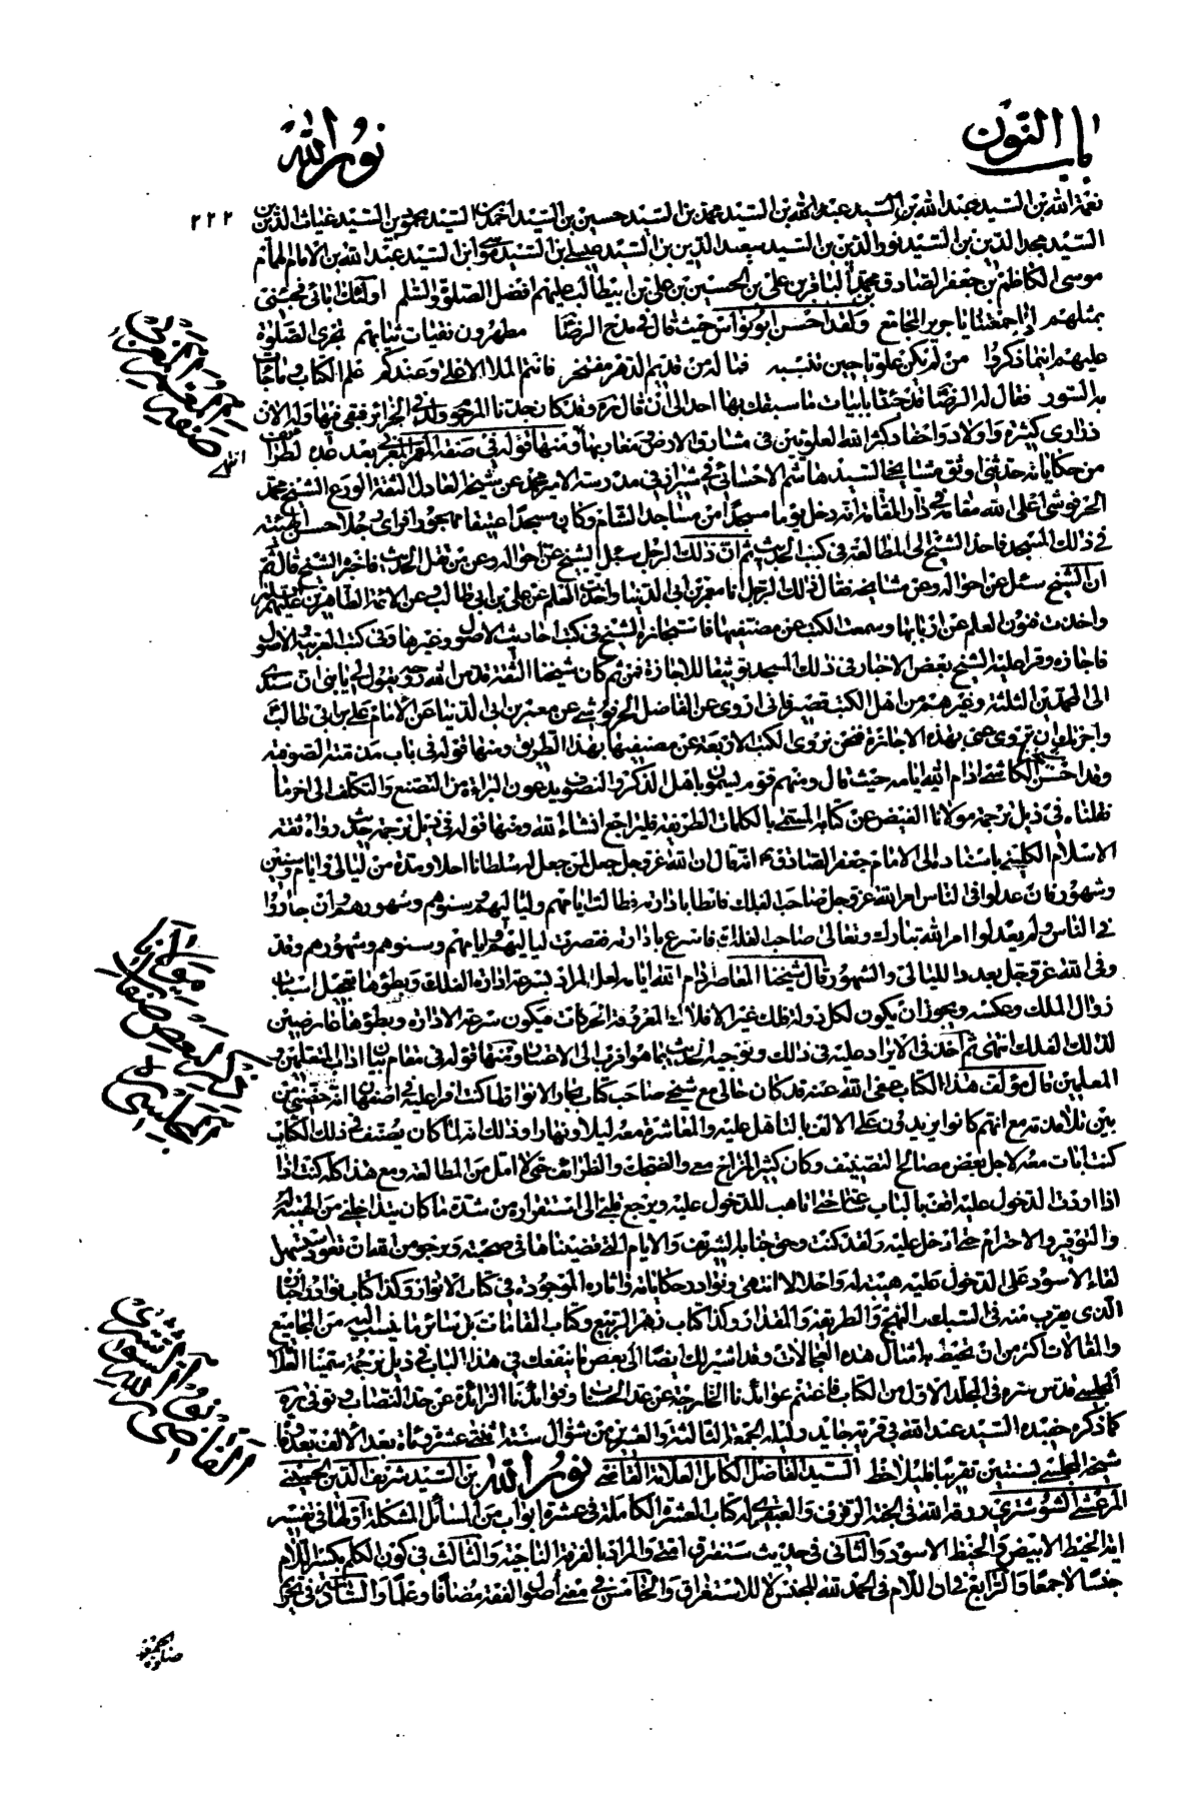 باب النون
نور الله
٢٢٢
نعمة الله بن السيد عبد الله بن السيد عبد الله بن السيد محمد بن السيد حسين بن السيد احمد بن السيد محمود بن السيد غياث الدين بن
السيد مجد الدين بن السيد نور الدين بن السيد سعد الدين بن السيد عيسى بن السيد موسى ابن السيد عبد الله بن الامام الهمام
موسى الكاظم بن جعفر الصادق بن محمد الباقر بن علي بن الحسين بن علي بن ابيطالب عليهم افضل الصلوة والسلم اولئك ابائى فجئنى
بمثلهم اذا جمعتنا يا جرير المجامع ولقد احسن ابو نواس حيث قال في مدح الرضا مطهرون نقيات ثيابهم تجرى الصلوة
عليهم اينما ذكروا من لم يكن علويا حين تنسبه فما له من قديم الدهر مفتخر فانتم الملا الاعلى وعندكم علم الكتاب وما جاءت
به السور فقال له الرضا قد جئتنا بابيات ما سبقك بها احد الى ان قال ره وقد كان جدنا المرحوم ولد في الجزائر فبقى فيها وله الان
ذرارى كثيرة واولاد واحفاد كثر الله العلويين في مشارق الارض ومغاربها ومنها قوله في صفة المعمر المغربي بعد عده لطرا
من حكاياته حدثني اوثق مشايخي السيد هاشم الاحسائى في شيراز في مدرسة الامير محمد عن شيخه العادل الثقة الورع الشيخ محمد
الحرفوشى اعلى الله مقامه في دار المقامة انه دخل يوما مسجدا من مساجد الشام وكان مسجدا عتيقا مهجورا فراى رجلا حسن الهيئة
في ذلك المسجد فاخذ الشيخ الى المطالعة في كتب الحديث ثم ان ذلك الرجل سئل الشيخ عن احواله وعن من نقل الحديث فاخبره الشيخ قال ثم
ان الشيخ سئل عن احواله وعن مشايخه فقال ذلك الرجل انا معمر بن ابى الدنيا واخذت العلم عن علي بن ابى طالب عن الائمة الطاهرين عليهم السلام
واخذت فنون العلم عن اربابها وسمعت الكتب عن مصنفيها فاستجازه الشيخ في كتب احاديث الاصول وغيرها وفى كتب العربية والاصول
فاجازه وقرا عليه الشيخ بعض الاخبار في ذلك المسجد توثيقا للاجازة فمن ثم كان شيخنا الثقة قدس الله روحه يقول لي يا بنى ان سندى
الى المحمدين الثلثة وغيرهم من اهل الكتب قصير فانى اروى عن الفاضل الحرفوشى عن معمر بن ابى الدنيا عن الامام علي بن ابى طالب
واجزتك ان تروى عنى بهذه الاجازة فنحن نروى الكتب الاربعة عن مصنفيها بهذا الطريق ومنها قوله في باب مذمته الصوفية
وقد احسن الكاشى ادام الله ايامه حيث قال ومنهم قوم يسمون باهل الذكر والتصوف يدعون البراءة من التصنع والتكلف الى اخر ما
نقلناه في ذيل ترجمة مولانا الفيض عن كتابه المسمى بالكلمات الطريفة فليراجع انشاء الله ومنها قوله في ذيل ترجمة حديث رواه ثقة
الاسلام الكلينى باسناده الى الامام جعفر الصادق انه قال ان الله عز وجل جعل لمن جعل له سلطانا اجلا ومدة من ليالى وايام وسنين
وشهور فان عدلوا في الناس امر الله عز وجل صاحب الفلك فابطا بادارته فطالت ايامهم ولياليهم وسنوهم وشهورهم وان جاروا
في الناس ولم يعدلوا امر الله تبارك وتعالى صاحب الفلك فاسرع بادارته فقصرت لياليهم وايامهم وسنوهم وشهورهم وقد
وفى الله عز وجل بعدد الليالى والشهور قال شيخنا المعاصر ادام الله ايامه لعل المراد بسرعة ادارة الفلك وبطؤها تعجيل اسباب
زوال الملك وعكسه ويجوز ان يكون لكل دولة فلك غير الافلاك المعروفة الحركات فيكون سرعة الادارة وبطؤها عارضين
لذلك الفلك انتهى ثم اخذ في الايراد عليه في ذلك وتوجيه الحديث بما هو اقرب الى الاذهان ومنها قوله في مقام بيان اداب المتعلمين و
المعلمين قال مؤلف هذا الكتاب عفى الله عنه قد كان حالى مع شيخى صاحب كتاب بحار الانوار لما كنت اقرا عليه في اصفهان انه خصنى من
بين تلامذته مع انهم كانوا يزيدون على الالف بالتاهل عليه والمعاشرة معه ليلا ونهارا وذلك انه لما كان يصنف في ذلك الكتاب
كنت ابات معه لاجل بعض مصالح التصنيف وكان كثير المزاح معى والضحك والظرائف حتى لا امل من المطالعة ومع هذا كله كنت اذا
اذا اردت الدخول عليه اقف بالباب ساعة حتى اتاهب للدخول عليه ويرجع قلبى الى استقراره من شدة ما كان يتداخلنى من الهيبة له
والتوقير والاحترام حتى ادخل عليه ولقد كنت وحق جنابه الشريف والايام التى قضيناها في صحبته ونرجو من الله ان تعود تسهل
لقاء الاسود على الدخول عليه هيبة له واجلالا انتهى ونوادر حكاياته واثاره الموجودة في كتاب الانوار وكذا كتاب نوادر الاخبار
الذى يقرب منه في السبك والنهج والطريقة والمقدار وكذا كتاب زهر الربيع وكتاب المقامات بل سائر ما ينسب اليه من المجاميع
والمقالات اكثر من ان يحيط به امثال هذه العجالات وقد اشير لك ايضا الى بعض ما ينفعك في هذا الباب في ذيل ترجمة سمينا العلامة
المجلسى قدس سره في المجلد الاول من الكتاب فاغتنم عوائدنا الخارجة عن عدد الحساب وفوائدنا الزائدة عن حد النصاب وتوفى ره
كما ذكره حفيده السيد عبد الله في قرية جايدر وليلة الجمعة الثالثة والعشرين من شوال سنة اثنتى عشرة ومائة بعد الالف بعد وفاة
شيخه المجلسى بسنتين تقريبا فليلاحظ السيد الفاضل الكامل العلامة القاضى نور الله بن السيد شريف الدين الحسينى
المرعشى الشوشترى روقه الله في الجنة الرفرف والعبقرى له كتاب العشرة الكاملة في عشرة ابواب من المسائل المشكلة اولها في تفسير
اية الخيط الابيض والخيط الاسود والثانى في حديث ستفترق امتى والمراد بالفرقة الناجية والثالث في كون الكلم بكسر اللام
جنسا لا جمعا والرابع في ان اللام في الحمد لله للجنس لا للاستغراق والخامس في معنى اصول الفقه مضافا وعلما والسادس في تحرير
معمر المغربى
مقالة
في بعض صفات
المجلسى
القاضى نور الله التسترى